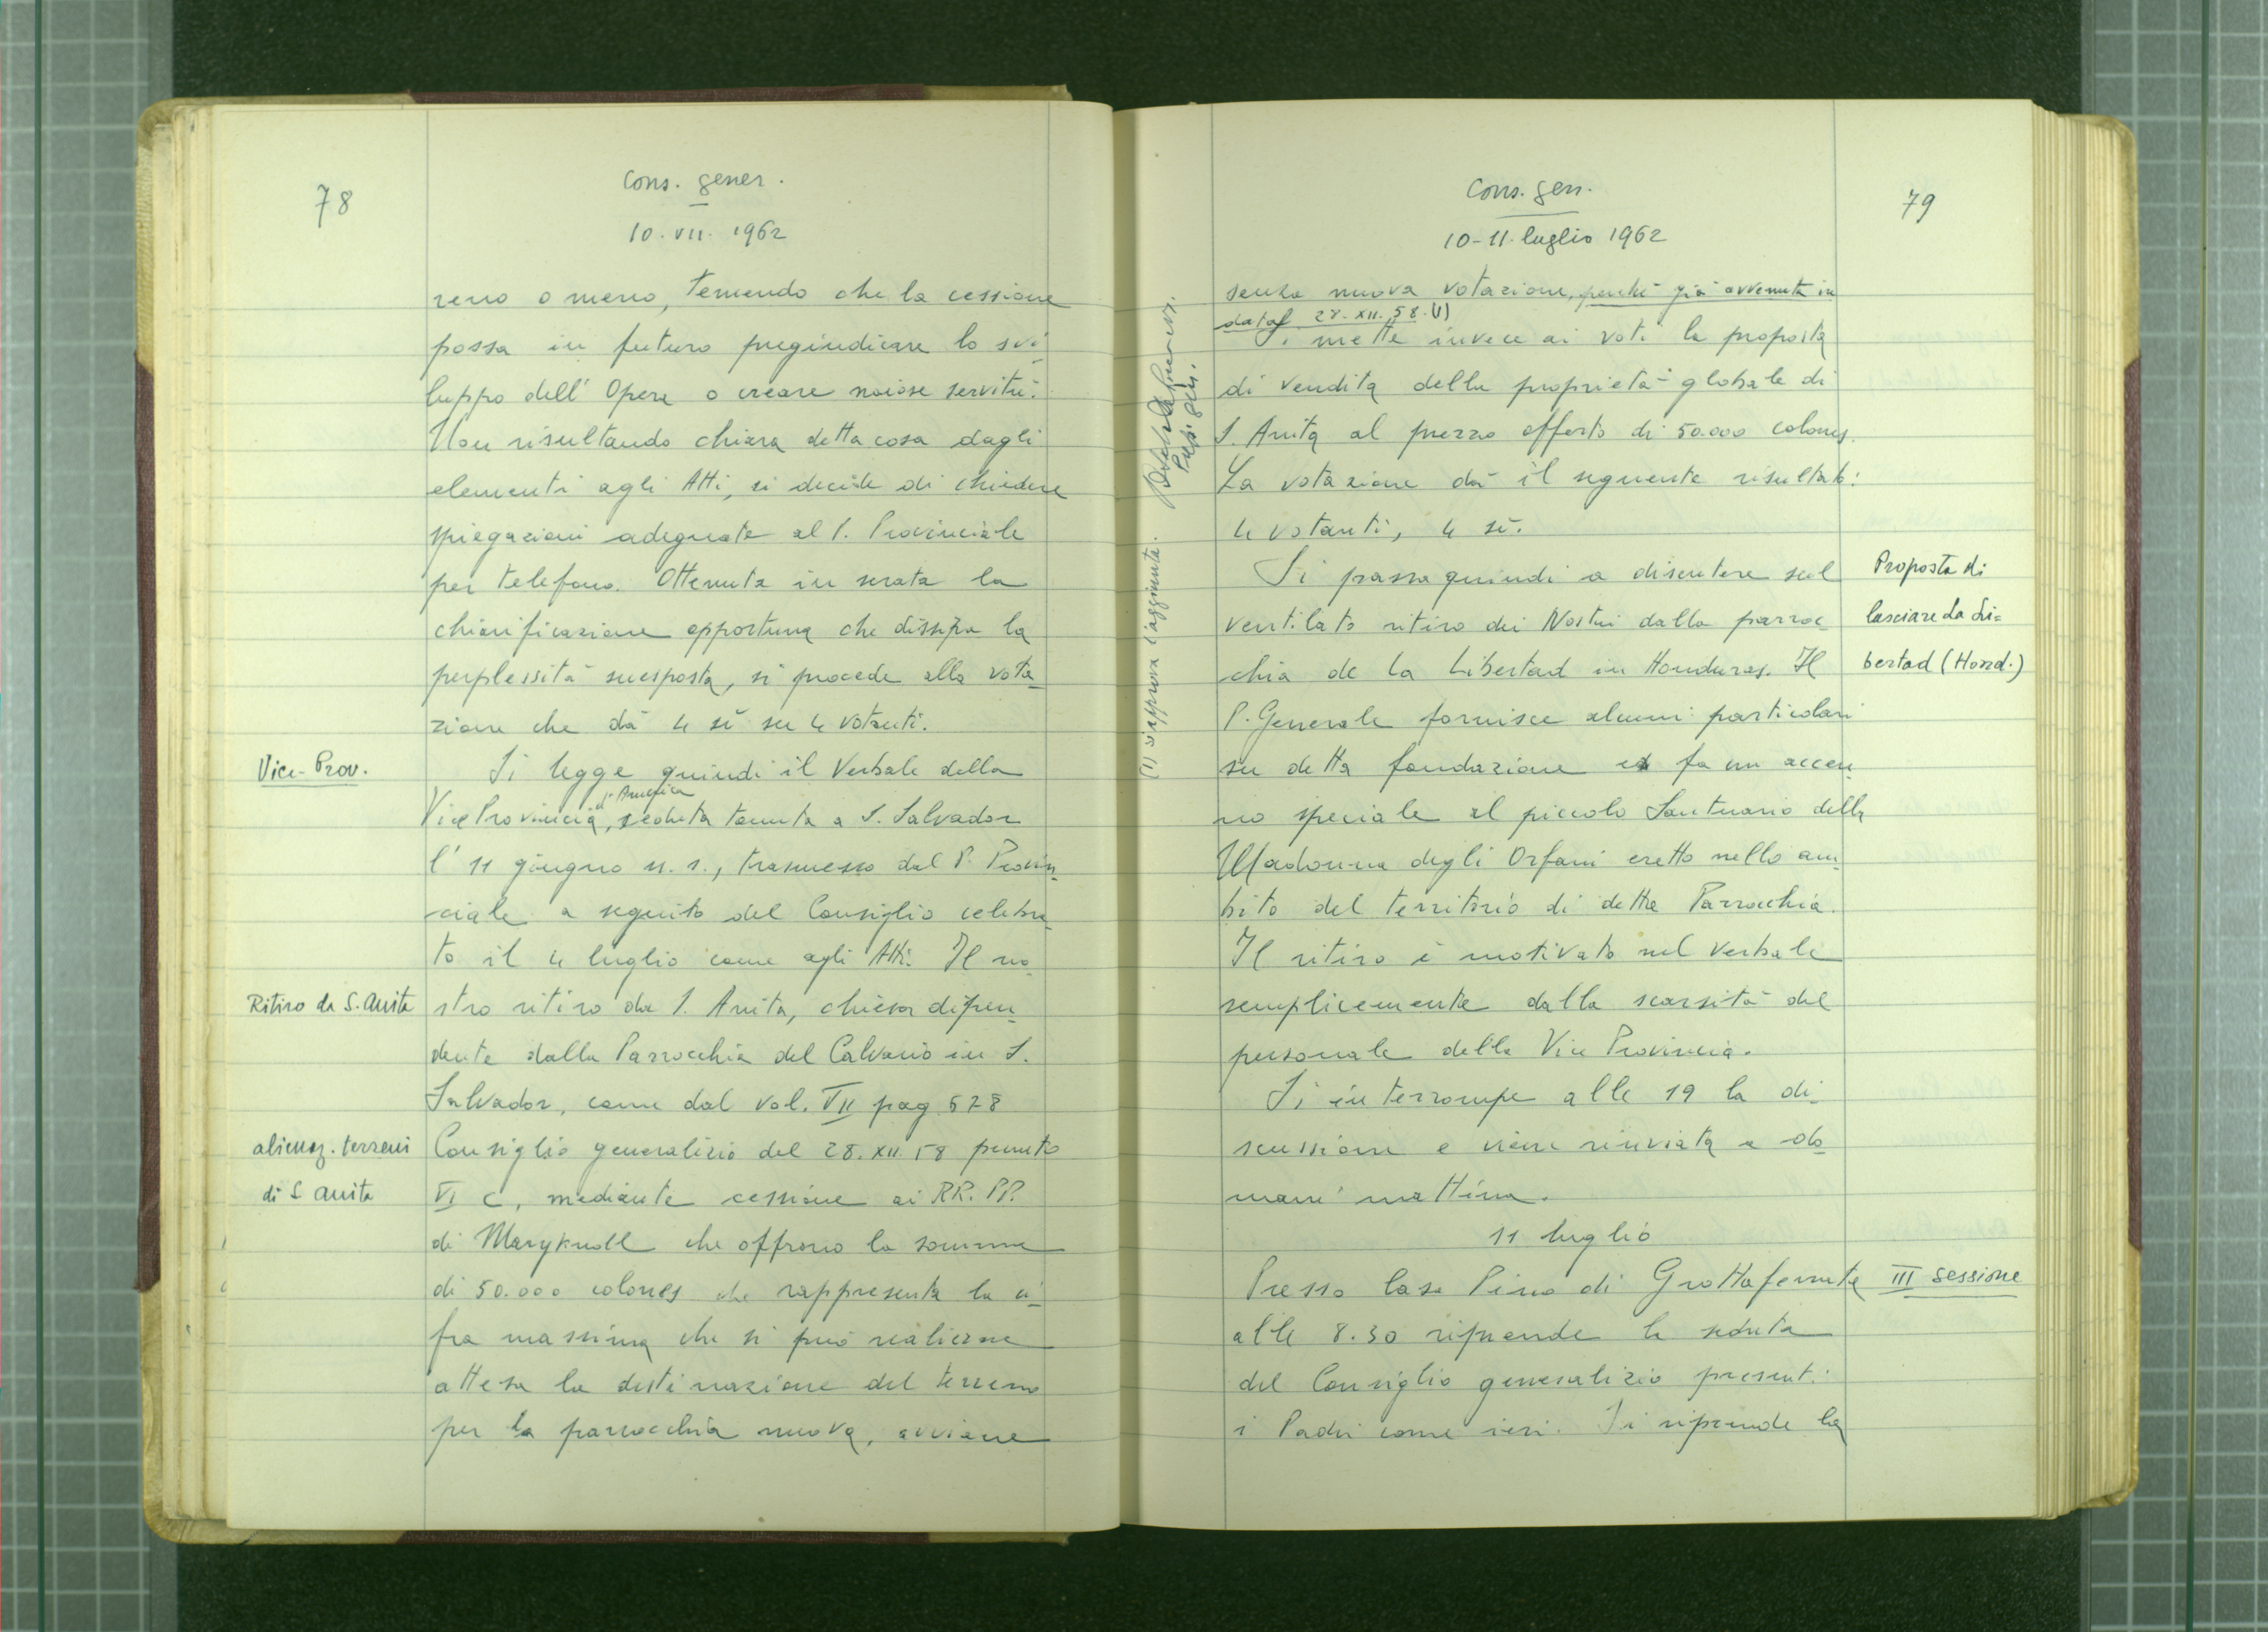 78
Cons. gener.
10. VII. 1962
reno o meno, temendo che la cessione
possa in futuro pregiudicare lo svi-
luppo dell'Opera o creare noiose servitù.
Non risultando chiara detta cosa dagli
elementi agli Atti, si decide di chiedere
spiegazioni adeguate al P. Provinciale
per telefono. Ottenuta in serata la
chiarificazione opportuna che dissipa la
perplessità suesposta, si procede alla vota-
zione che dà 4 sì su 4 votanti.
Vice-Prov.
Si legge quindi il Verbale della
d'America
Vice Provincia, seduta tenuta a S. Salvador
l'11 giugno u. s., trasmesso dal P. Provin-
ciale a seguito del Consiglio celebra-
to il 4 luglio come agli Atti. Il no-
Ritiro da S. Anita
stro ritiro da S. Anita, chiesa dipen-
dente dalla Parrocchia del Calvario in S.
Salvador, come dal vol. VII pag. 578
alienaz. terreni
Consiglio generalizio del 28. XII 58 punto
di S. Anita
VI C, mediante cessione ai RR. PP.
di Maryknoll che offrono la somma
di 50.000 colones che rappresenta la ci-
fra massima che si può realizzare
attesa la destinazione del terreno
per la parrocchia nuova, avviene
Cons. gen.
79
10-11. luglio 1962
senza nuova votazione, perché già avvenuta in
data 28. XII. 58. (1)
Si mette invece ai voti la proposta
di vendita della proprietà globale di
S. Anita al prezzo offerto di 50.000 colones.
La votazione dà il seguente risultato:
4 votanti, 4 sì.
Si passa quindi a discutere sul
Proposta di
ventilato ritiro dei Nostri dalla parroc-
lasciare La Li=
chia de la Libertad in Honduras. Il
bertad (Hond.)
P. Generale fornisce alcuni particolari
su detta fondazione e fa un accen-
no speciale al piccolo Santuario della
Madonna degli Orfani eretto nello am-
bito del territorio di detta Parrocchia.
Il ritiro è motivato nel verbale
semplicemente dalla scarsità del
personale della Vice Provincia.
Si interrompe alle 19 la di-
scussione e viene rinviata a do-
mani mattina.
11 luglio
Presso Casa Pino di Grottaferrata
III sessione
alle 8.30 riprende la seduta
del Consiglio generalizio presenti
i Padri come ieri. Si riprende la
(1) si approva l'aggiunta.